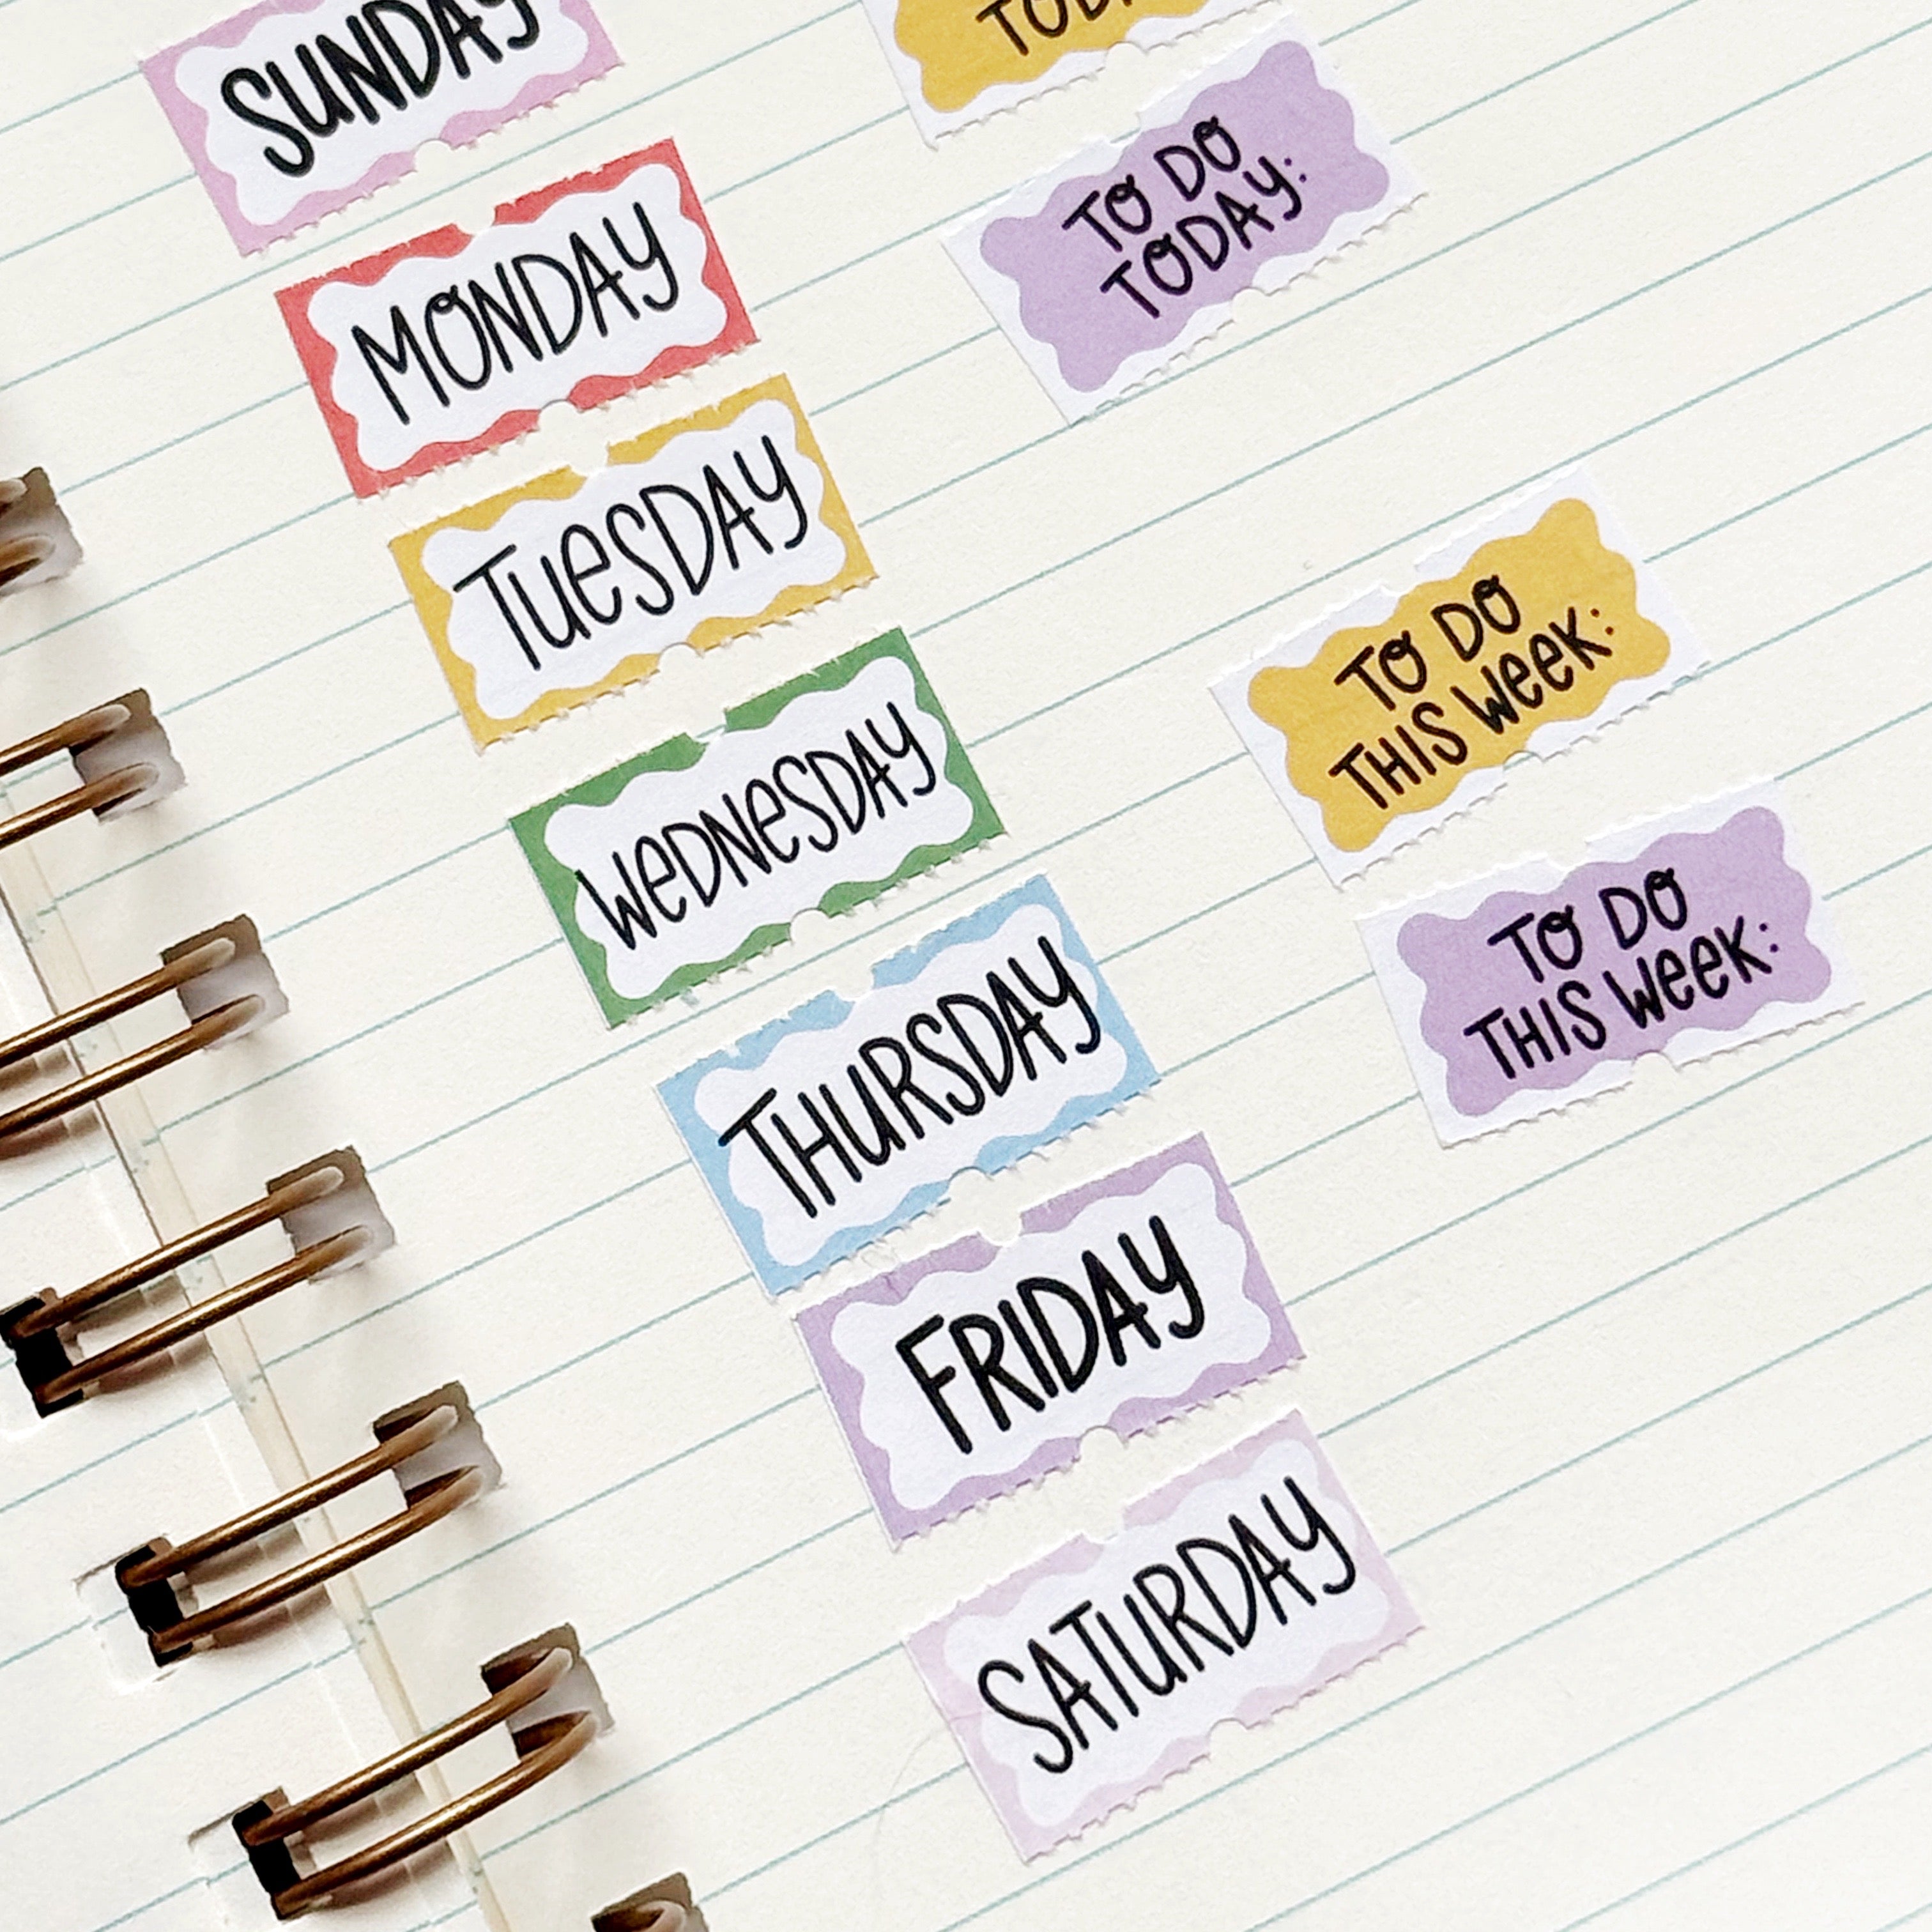 SUNDAY
MONDAY
TUESDAY
WEDNESDAY
THURSDAY
FRIDAY
SATURDAY
TODAY
TO DO
TODAY:
TO DO
THIS WEEK:
TO DO
THIS WEEK: